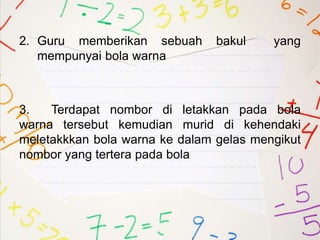 1÷2=2
3+3=6
6=
2. Guru memberikan sebuah bakul yang
mempunyai bola warna
3. Terdapat nombor di letakkan pada bola
warna tersebut kemudian murid di kehendaki
meletakkkan bola warna ke dalam gelas mengikut
nombor yang tertera pada bola
10
- 5
5
+5=
7-2=5
9-